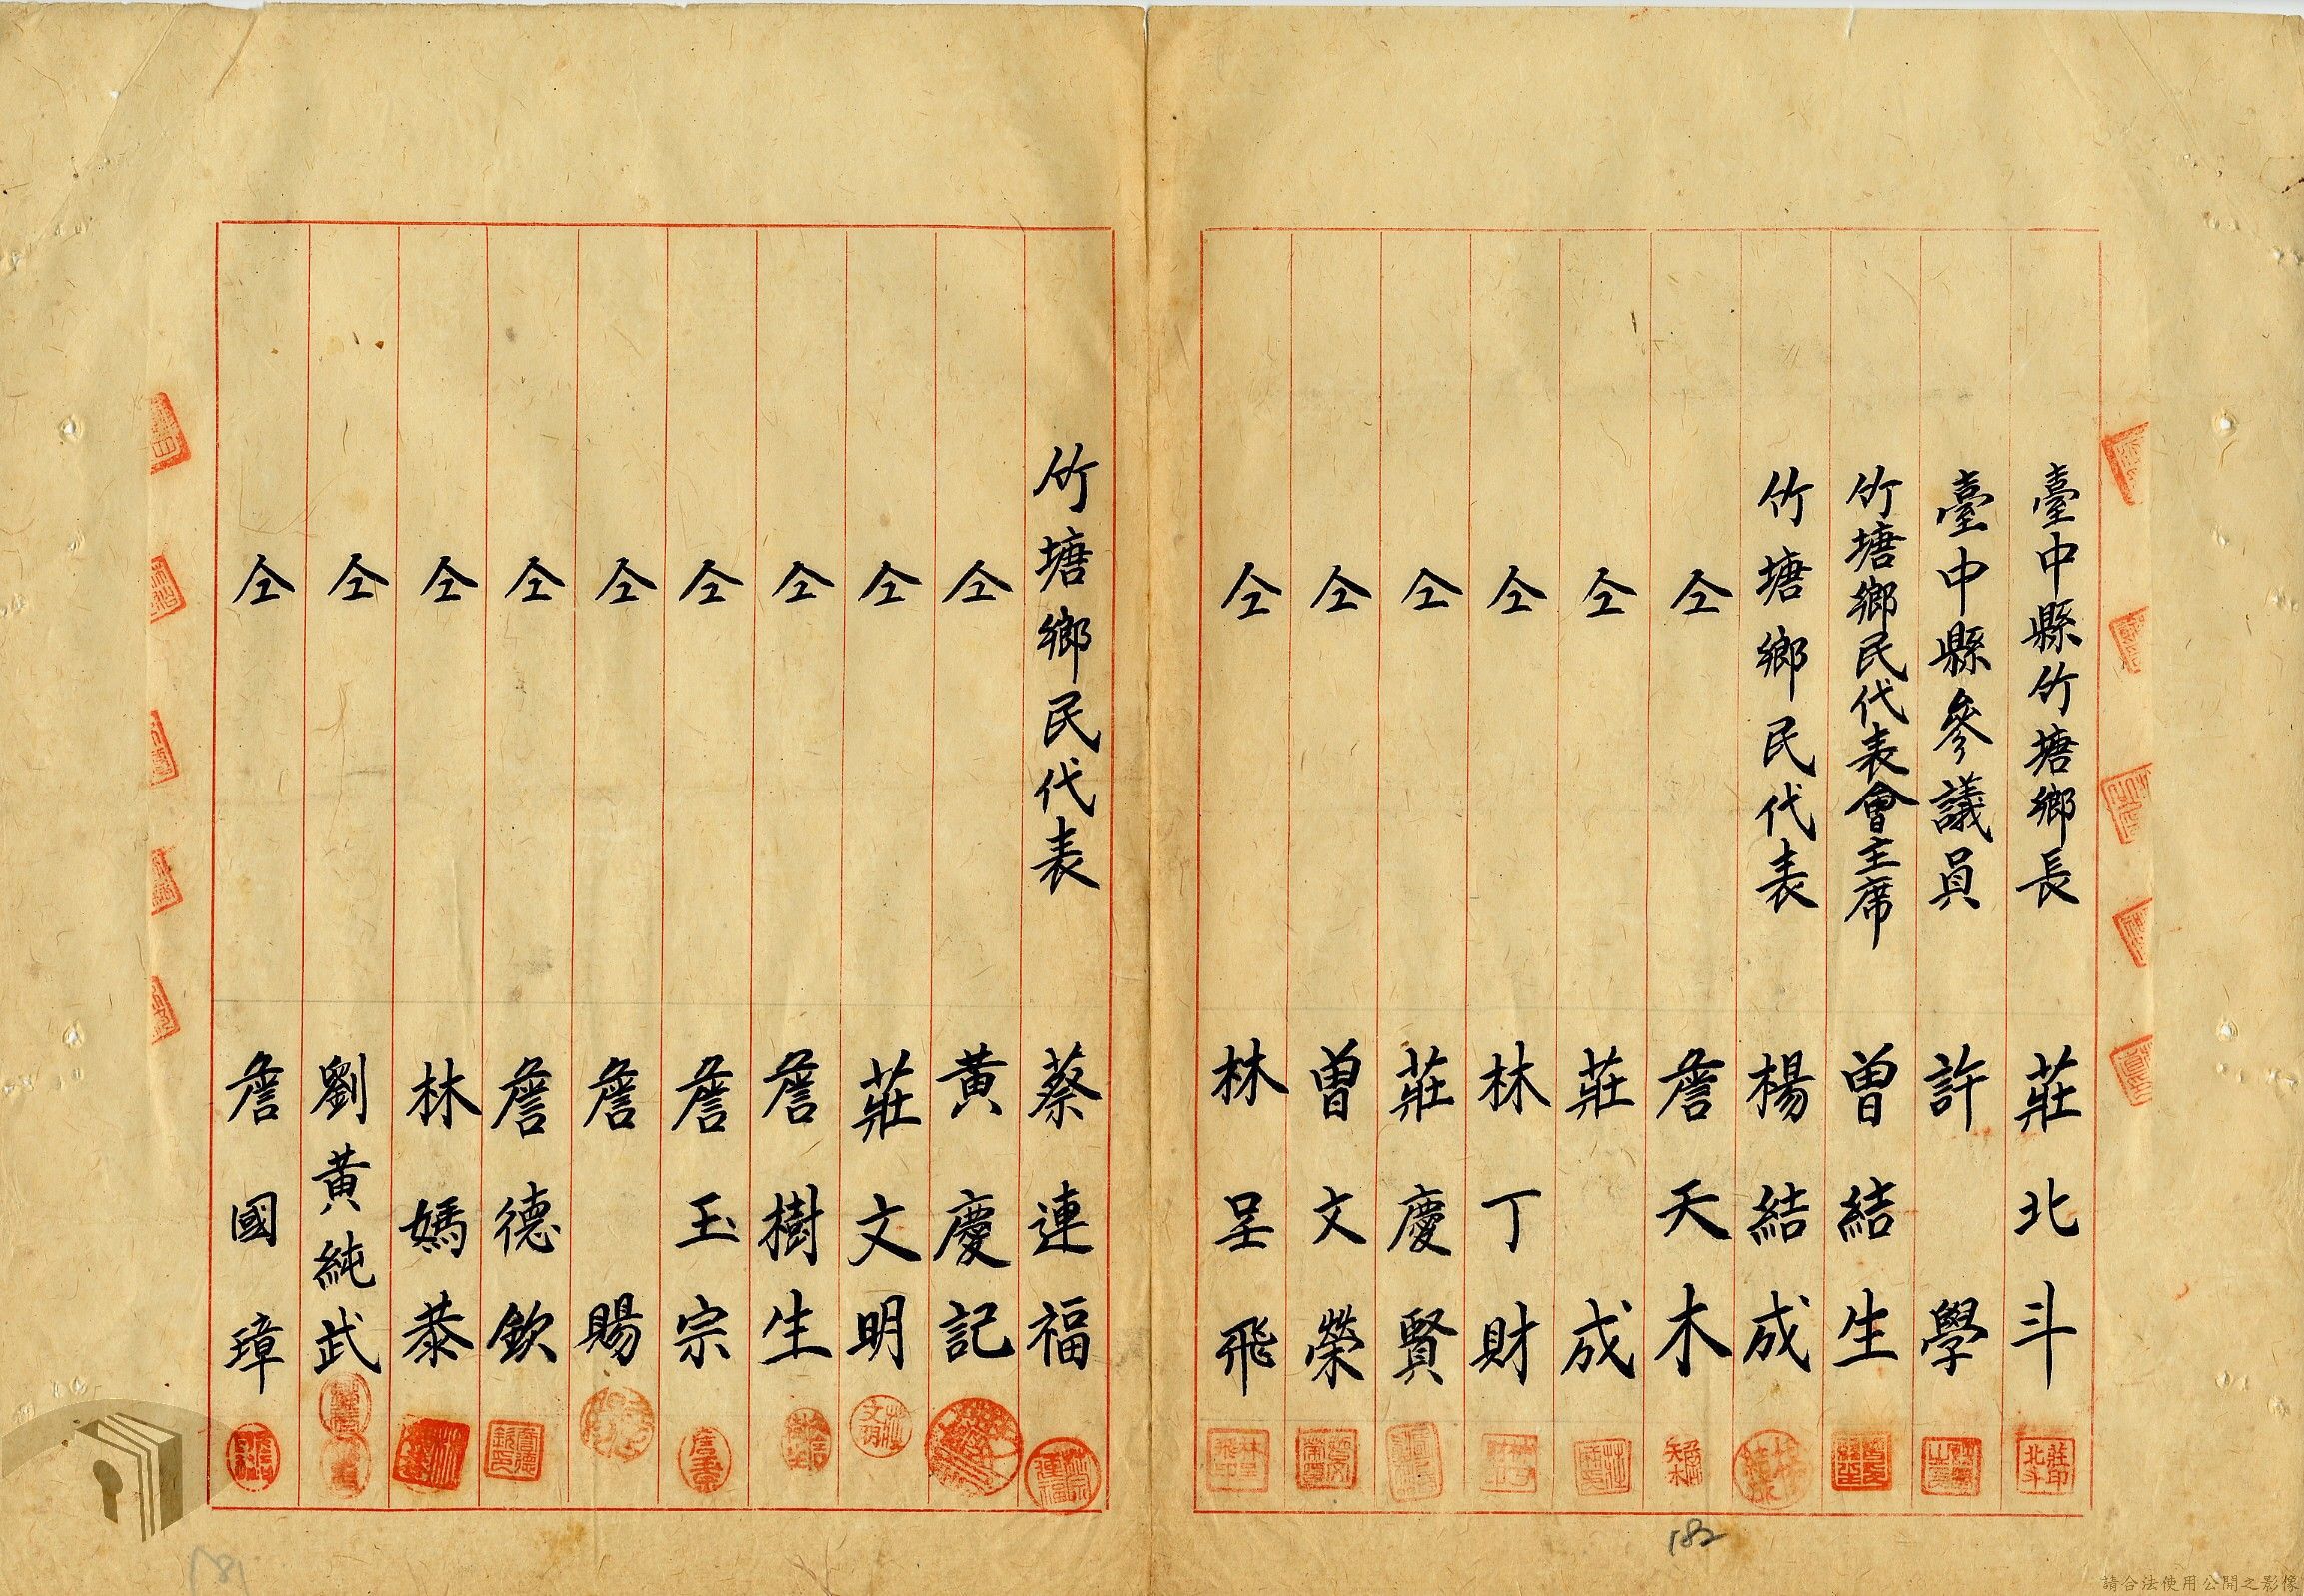 臺中縣竹塘鄉長 莊北斗
臺中縣參議員 許學
竹塘鄉民代表會主席 曾結生
竹塘鄉民代表 楊結成
仝 詹天木
仝 莊成
仝 林丁財
仝 莊慶賢
仝 曾文榮
仝 林呈飛
竹塘鄉民代表 蔡連福
仝 黃慶記
仝 莊文明
仝 詹樹生
仝 詹玉宗
仝 詹賜
仝 詹德欽
仝 林媽恭
仝 劉黃純武
仝 詹國璋
莊印北斗
182
181
請合法使用公開之影像